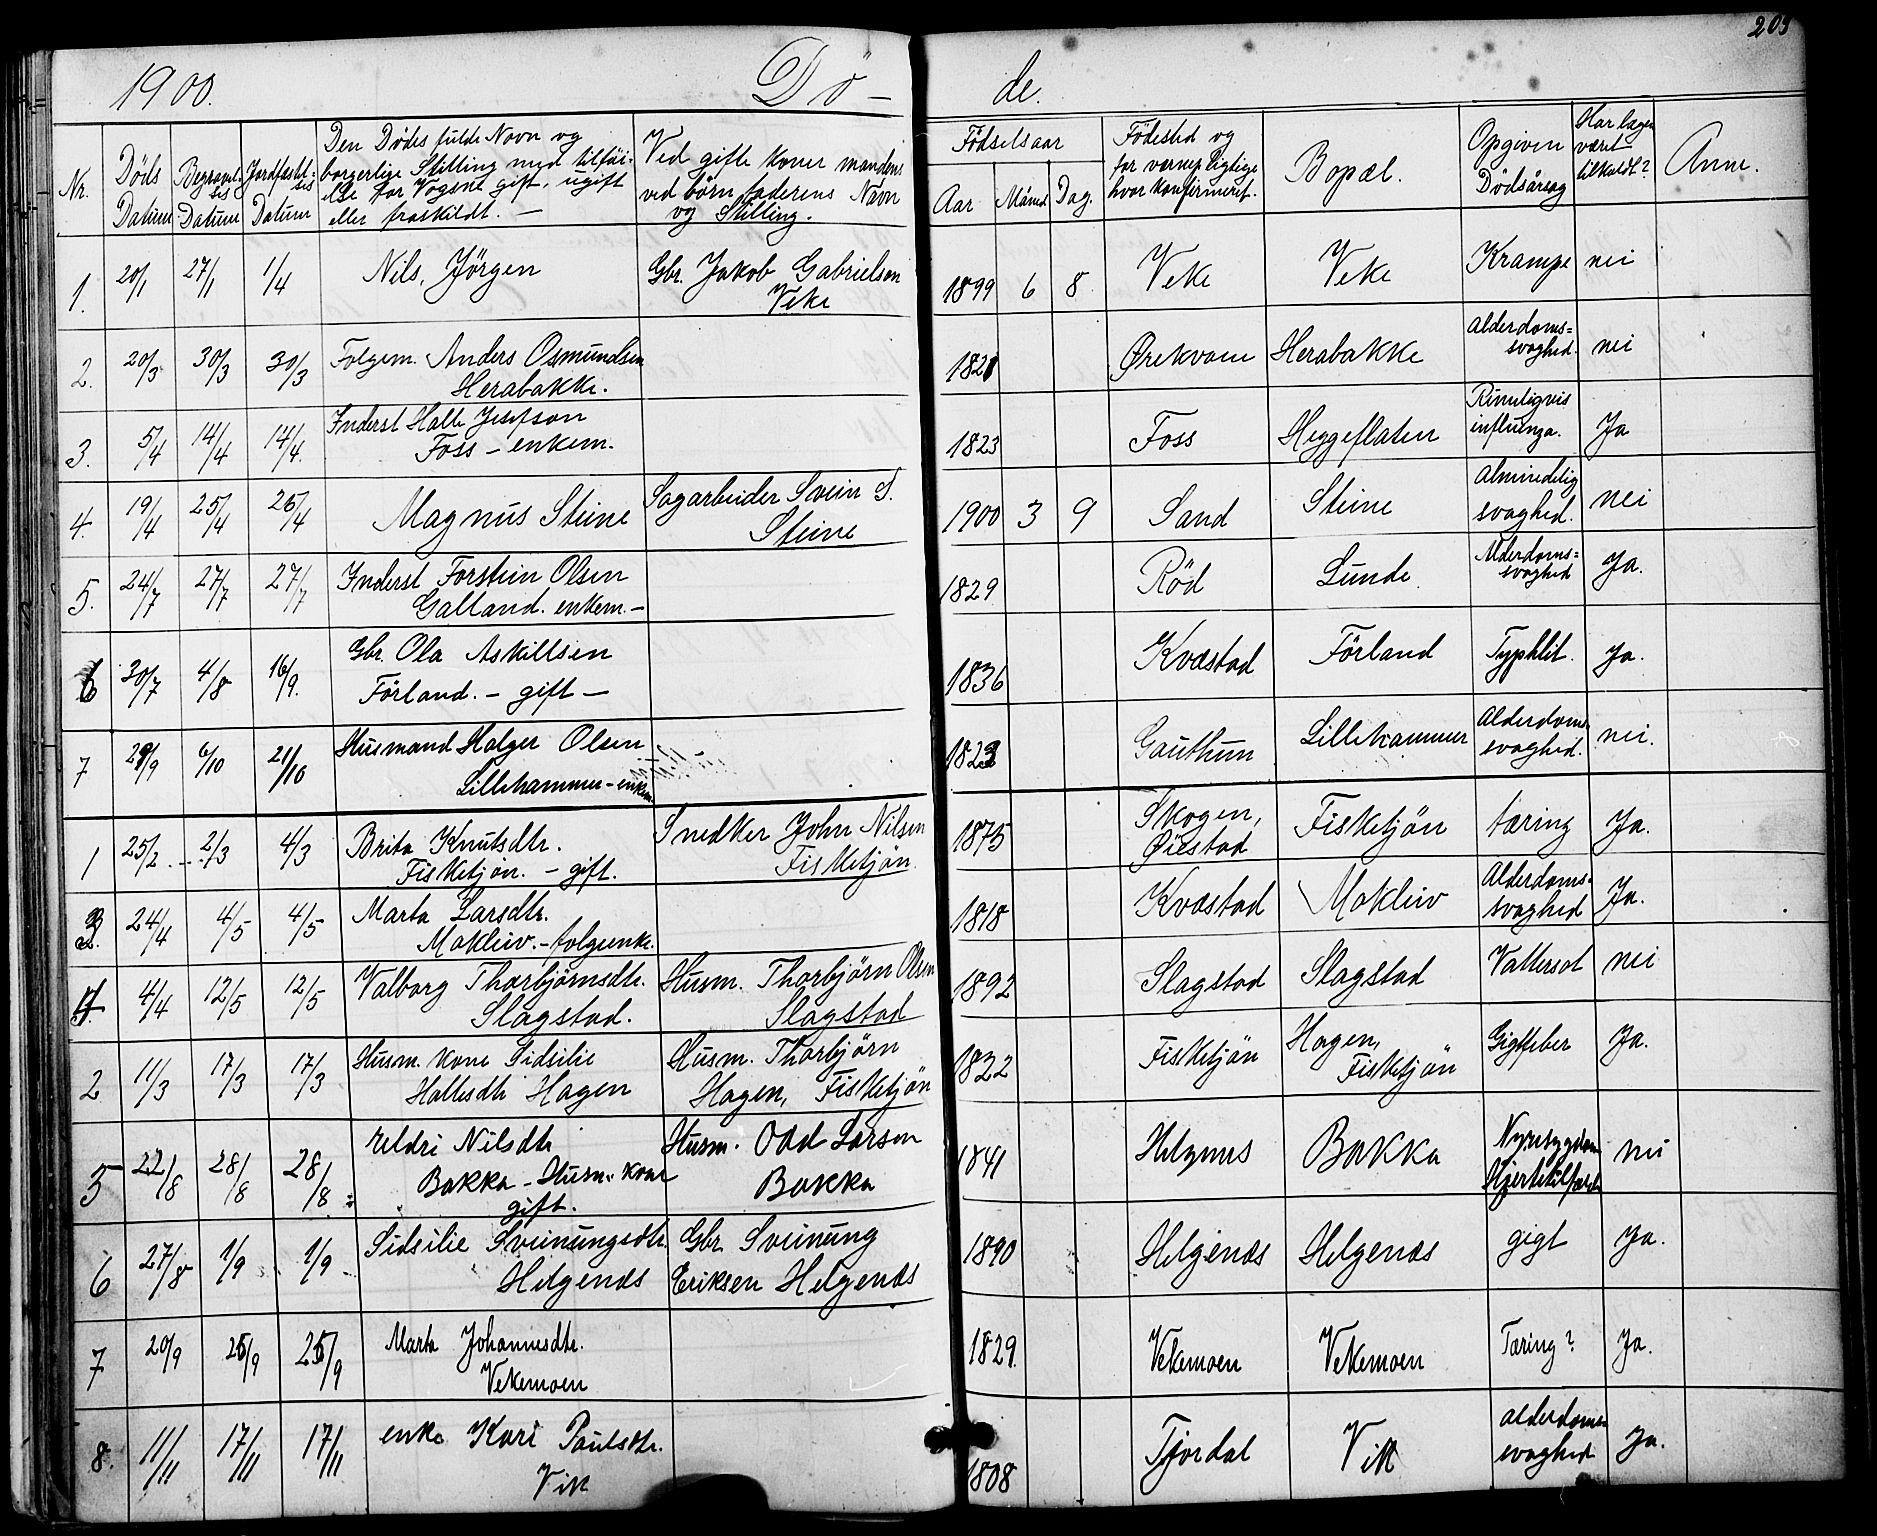 203
1900. Dö- de.
Nr. Döds Datum Begravelsis Datum Jordfæstelsis Datum Den Dødes fulde Navn og borgerlige Stilling med tilföielse for Vogsne gift, ugift eller fraskildt. — Ved gifte koner mandens ved börn faderens Navn og Stilling. Födselsaar Aar Måned Dag. Födested og for vernepligtige hvor konfirmeret. Bopæl. Opgiven Dödsårsag Har lægen været tilkaldt? Anm.
1. 20/1 27/1 1/4 Nils, Jörgen Gbr. Jakob Gabrielsen Veke 1899 6 8 Veke Veke Krampe nei
2. 20/3 30/3 30/3 Folgem. Anders Osmundsen Herabakke. 1821 Ørekvam Herabakke Alderdoms=svaghed. nei
3. 5/4 14/4 14/4. Inderst Halle Josefson Foss – enkem. 1823 Foss Heggeflaten Rimeligvis influenza. Ja
4. 19/4 25/4 26/4 Magnus Steine Sagarbeider Svein S. Steine 1900 3 9 Sand Steine Almindelig svaghed. nei
5. 24/7 27/7 27/7 Inderst Torstein Olsen Galland. enkem. – 1829 Röd Lunde Alderdoms=svaghed Ja.
6 30/7 4/8 16/9. Gbr. Ola Askillsen Förland. – gift – 1836 Kvæstad Förland Typhlit. Ja.
7 29/9 6/10 21/10 Husmand Holger Olsen Lillehammer – enkem 1823 Gauthun Lillehammer Alderdoms svaghed. nei.
1 25/2 2/3 4/3 Brita Knutsdtr. Fisketjön. – gift. Snedker John Nilsen Fisketjön. 1875 Skogen, Øiestad Fisketjön tæring Ja.
3. 24/4 4/5 4/5 Marta Larsdtr. Mokleiv. – folgeenke. 1818 Kvæstad Mokleiv Alderdoms-svaghed Ja.
4. 4/4 12/5 12/5 Valborg Thorbjörnsdtr. Slagstad. Husm. Thorbjörn Olsen Slagstad 1892 Slagstad Slagstad Vattersot nei
2 11/3 17/3 17/3 Husm. kone Sidsilie Hallesdtr Hagen Husm. Thorbjörn Hagen, Fisketjön 1822 Fisketjön Hagen, Fisketjön Gigtfeber Ja.
5 22/8 28/8 28/8 Eldri Nilsdtr Bakka – Husm. kone gift. Husm. Odd Larsen Bakka 1841 Helgenes Bakka Nyresygdom Hjertetilfælde nei
6 27/8 1/9 1/9 Sidsilie Sveinungsdtr. Helgenæs Gbr. Sveinung Eriksen Helgenæs 1890 Helgenæs Helgenæs gigt Ja.
7 20/9 26/9 26/9 Marta Johannesdtr. Vekemoen 1829. Vekemoen Vekemoen Tæring? Ja.
8. 11/11 17/11 17/11 enke Kari Paulsdtr. Vik 1808 Tjordal Vik alderdoms svaghed Ja.